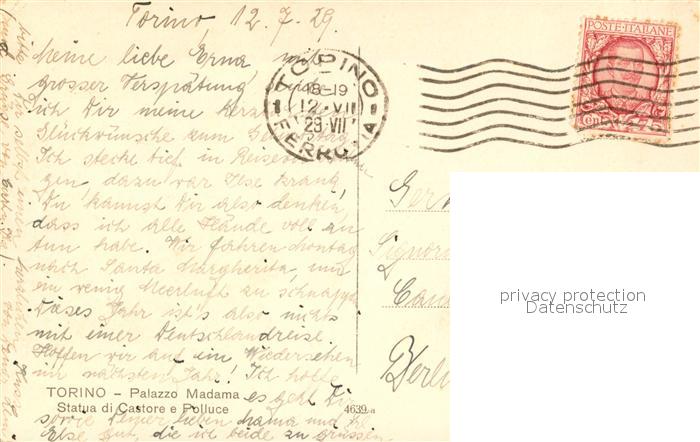 Torino, 12.7.29.
Meine liebe Erna, mit
grosser Verspätung sende
ich Dir meine herz
Glückwünsche zum Geburtstag
Ich stecke tief in Reise
gen dazu war Ilse krank,
Du kannst Dir also denken,
dass ich alle Hände voll zu
tun habe. Wir fahren Montag
nach Santa Margherita, um
ein wenig Meerluft zu schnappen.
Dieses Jahr ist's also nichts
mit einer Deutschlandreise.
Hoffen wir auf ein Wiedersehen
im nächsten Jahr! Ich hoffe
es geht Dir
sowie Deiner lieben Mama und
Else gut, die ich beide zu grüssen
bitte. Dir selbst einen herzlichen Kuss
von Deiner
TORINO – Palazzo Madama
Statua di Castore e Polluce
4639-a
TORINO
18-19
12·VII
29 VII
FERROVIA
POSTE·ITALIANE
Cent. 75
Ger
Signor
Berl
privacy protection
Datenschutz